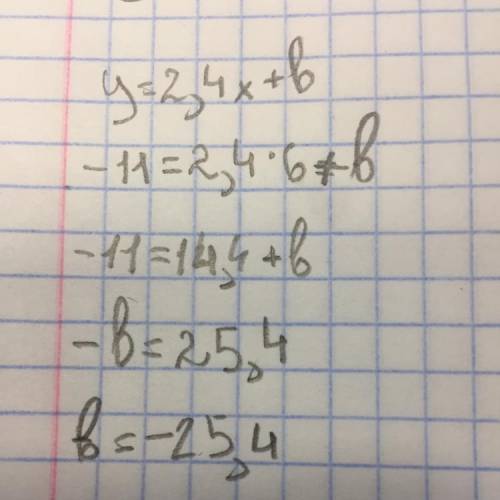 y=2,4x+b
-11=2,4·6+b
-11=14,4+b
-b=25,4
b=-25,4